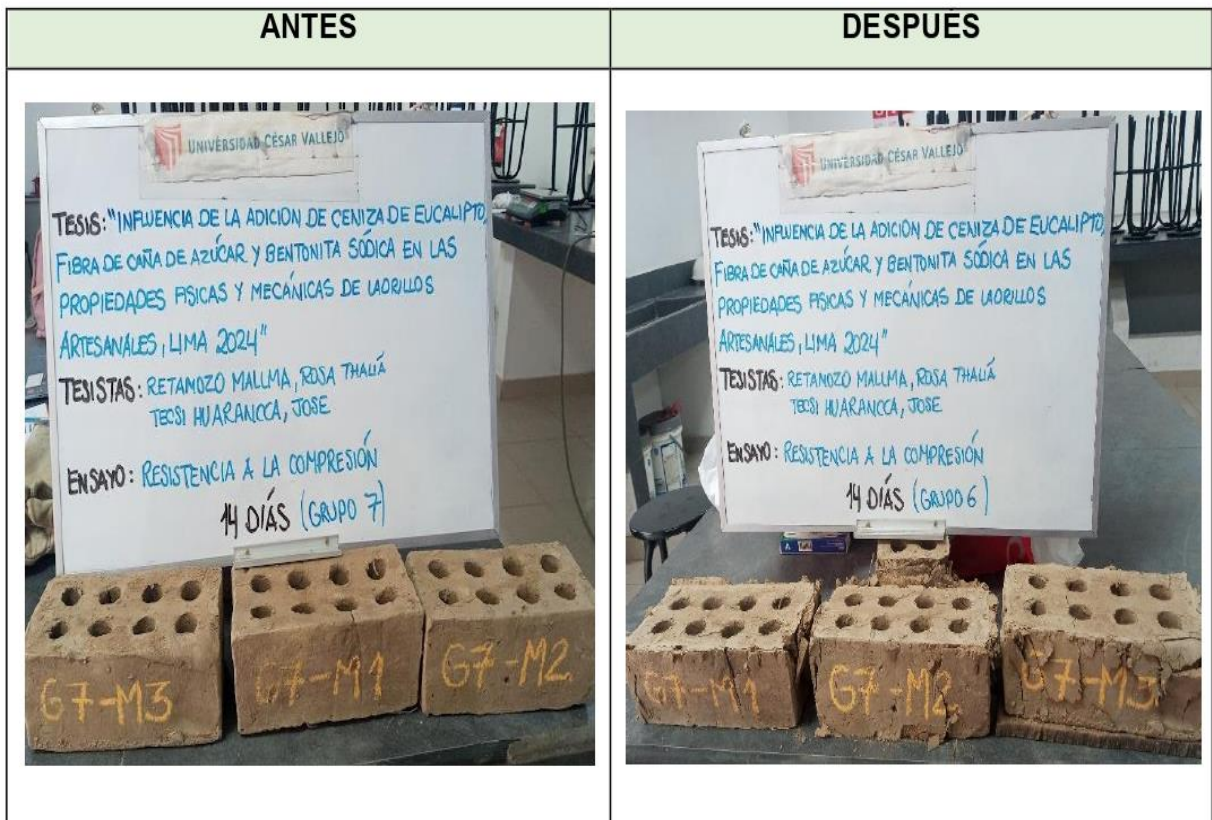 ANTES
DESPUÉS
UNIVERSIDAD CÉSAR VALLEJO
TESIS: "INFLUENCIA DE LA ADICION DE CENIZA DE EUCALIPTO,
FIBRA DE CAÑA DE AZÚCAR Y BENTONITA SÓDICA EN LAS
PROPIEDADES FISICAS Y MECÁNICAS DE LADRILLOS
ARTESANALES, LIMA 2024"
TESISTAS: RETAMOZO MALLMA, ROSA THALIÁ
TECSI HUARANCCA, JOSE
ENSAYO: RESISTENCIA A LA COMPRESIÓN
14 DÍAS (GRUPO 7)
G7-M3
G7-M1
G7-M2
UNIVERSIDAD CÉSAR VALLEJO
TESIS: "INFLUENCIA DE LA ADICION DE CENIZA DE EUCALIPTO,
FIBRA DE CAÑA DE AZÚCAR Y BENTONITA SÓDICA EN LAS
PROPIEDADES FISICAS Y MECÁNICAS DE LADRILLOS
ARTESANALES, LIMA 2024"
TESISTAS: RETAMOZO MALLMA, ROSA THALIÁ
TECSI HUARANCCA, JOSE
ENSAYO: RESISTENCIA A LA COMPRESIÓN
14 DÍAS (GRUPO 6)
G7-M1
G7-M2
G7-M3